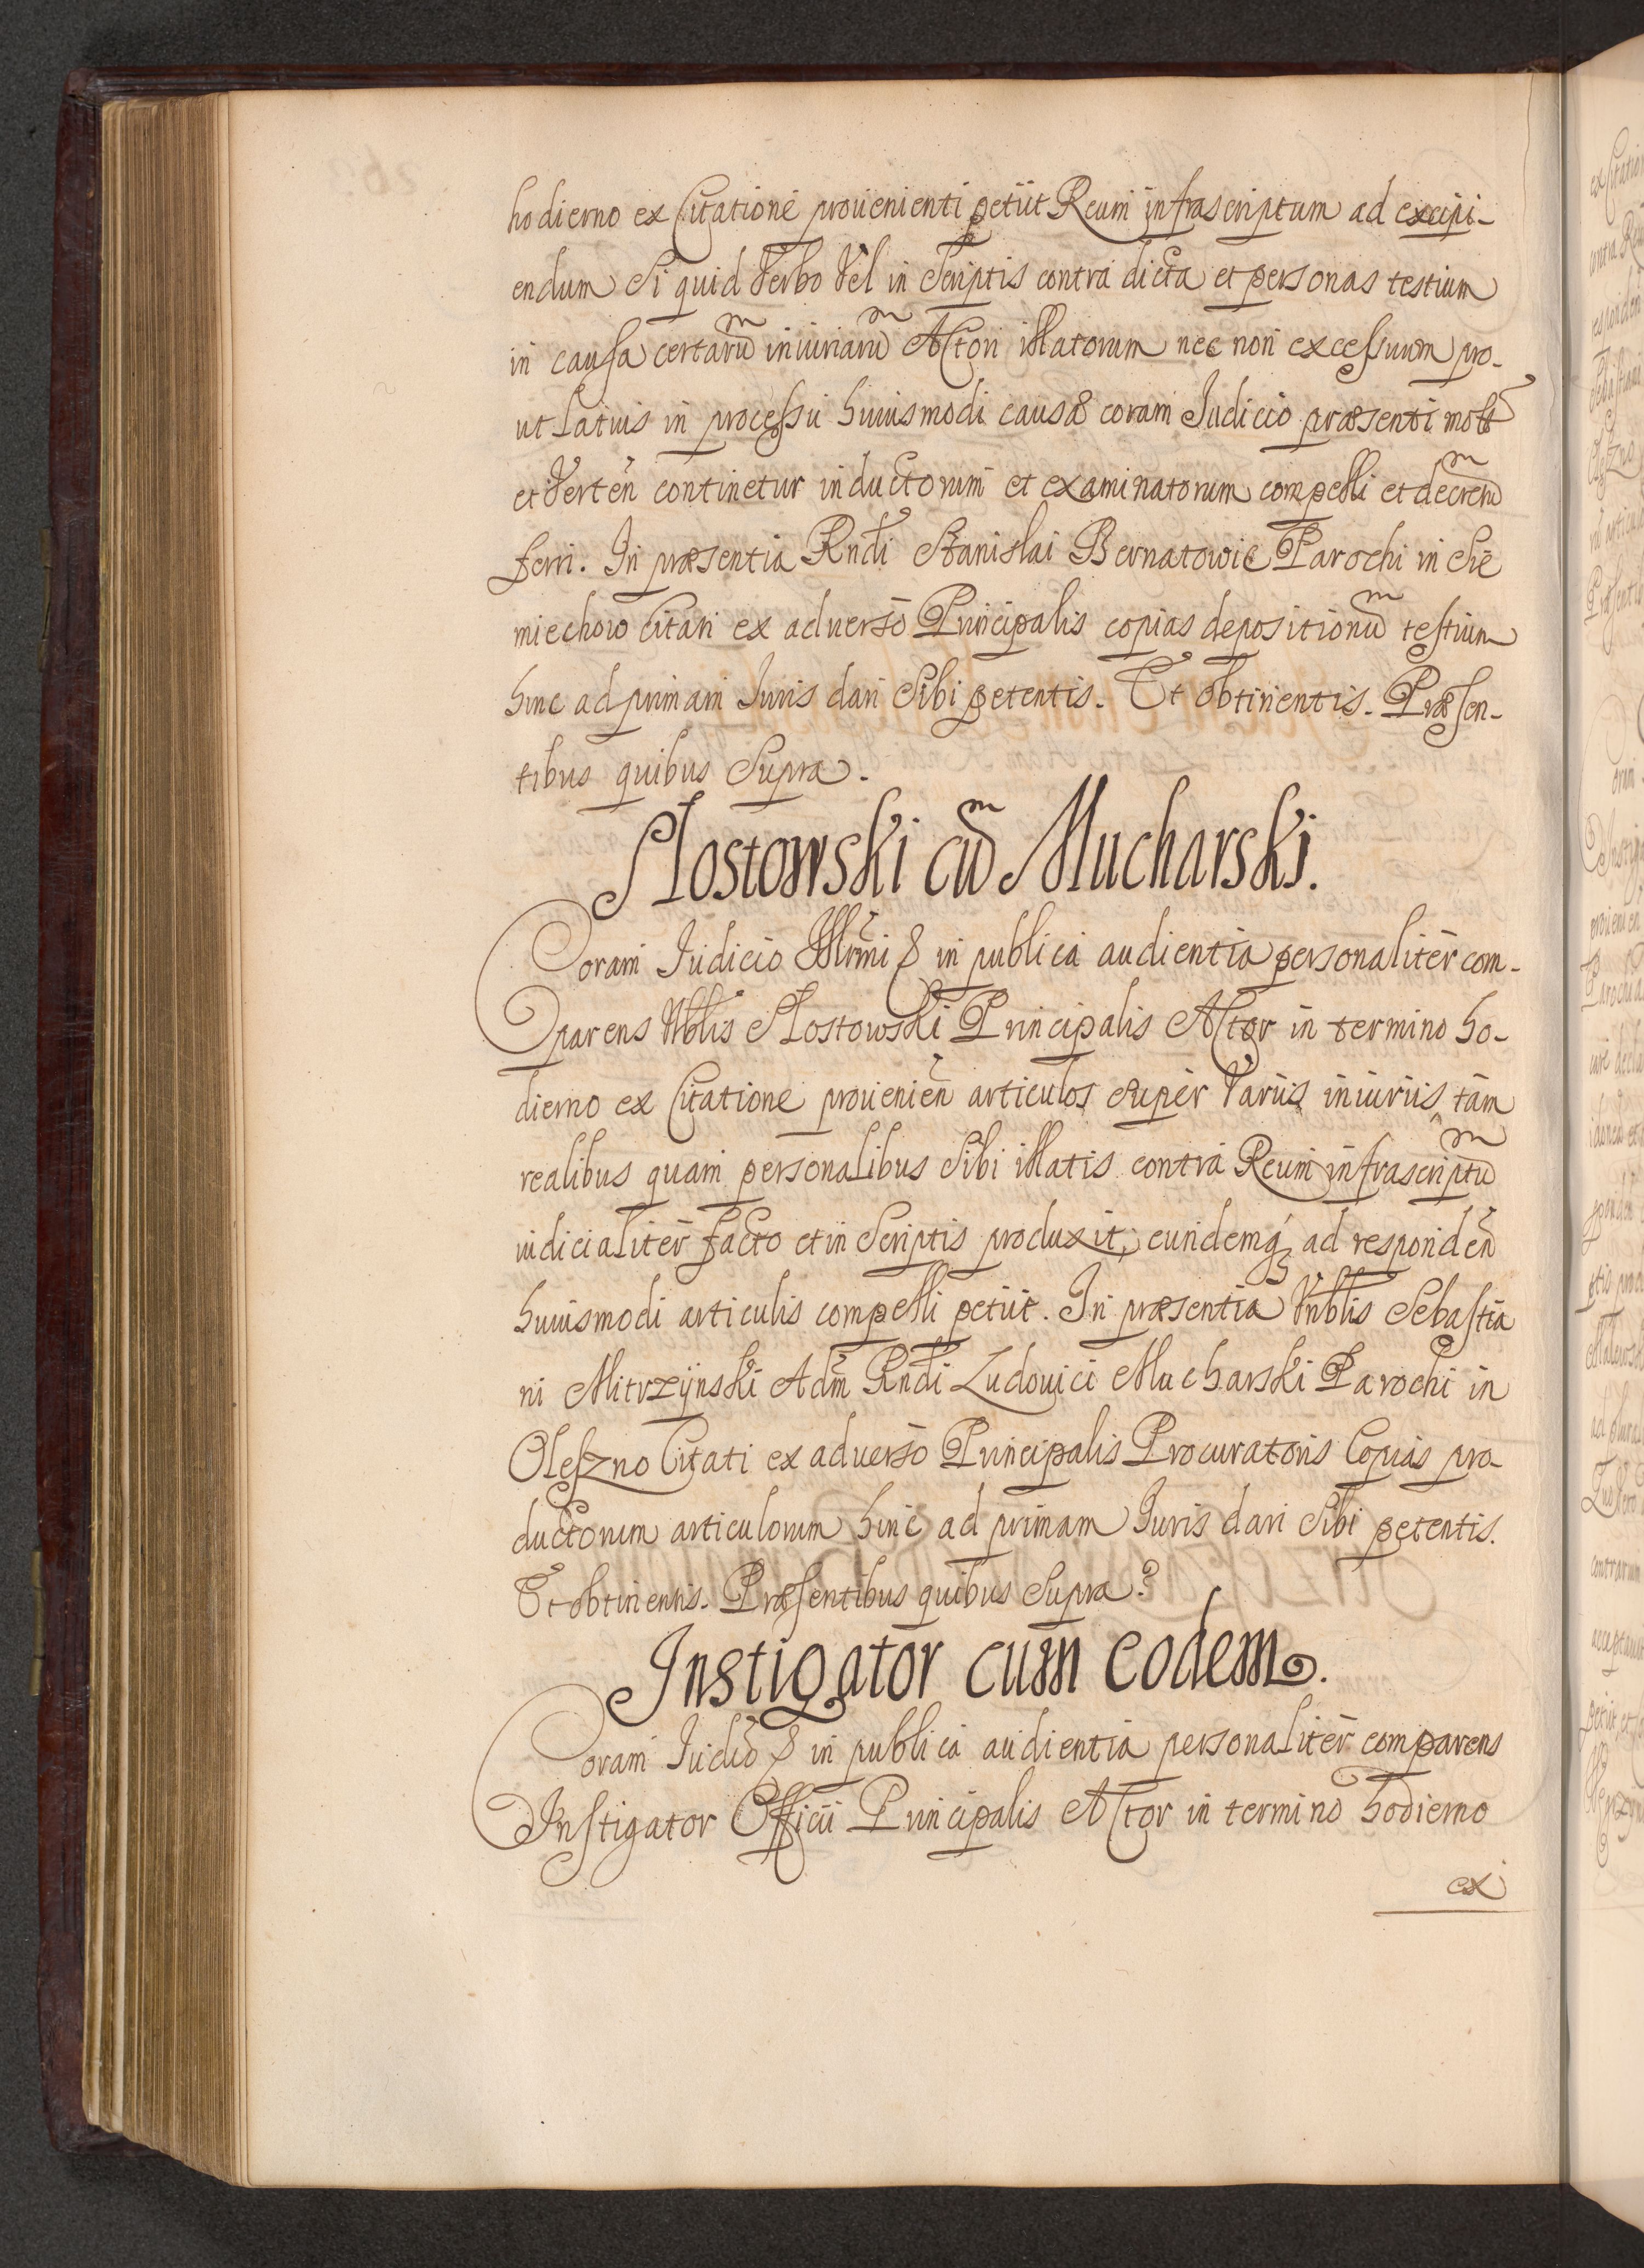 hodierno ex Citatione prouenienti petiit Reum infrascriptum ad excipi-
endum Si quid Verbo Vel in Scriptis contra dicta et personas testium
in causa certarū iniuriarū Actori illatorum nec non excessuum pro-
ut Latius in processu huiusmodi causæ coram Iudicio præsenti mott
et Verteñ continetur inductorum et examinatorum compelli et decretū
ferri. In præsentia Rndi Stanislai Bernatowic Parochi in Sie
miechow Citati ex aduerso Principalis copias depositionū testium
hinc ad primam Iuris dari Sibi petentis. Et obtinentis. Præsen-
tibus quibus Supra.
Slostowski cū Mucharski.
Coram Iudicio Illrmi & in publica audientia personaliter com-
parens Nblis Slostowski Principalis Actor in termino ho-
dierno ex Citatione prouenieñ articulos super Varüs iniurüs tam
realibus quam personalibus Sibi illatis contra Reum infrascriptū
iudicialiter facto et in Scriptis produxit, eundemq3 ad respondeñ
huiusmodi articulis compelli petiit. In præsentia Nblis Sebastia
ni Mitrzÿnski Adm Rndi Ludouici Mucharski Parochi in
Oleszno Citati ex aduerso Principalis Procuratoris Copias pro-
ductorum articulorum hinc ad primam Iuris dari Sibi petentis.
Et obtinentis. Præsentibus quibus Supra.
Instigator cum eodem.
Coram Iudicō & in publica audientia personaliter comparens
Instigator Officii Principalis Actor in termino hodierno
ex